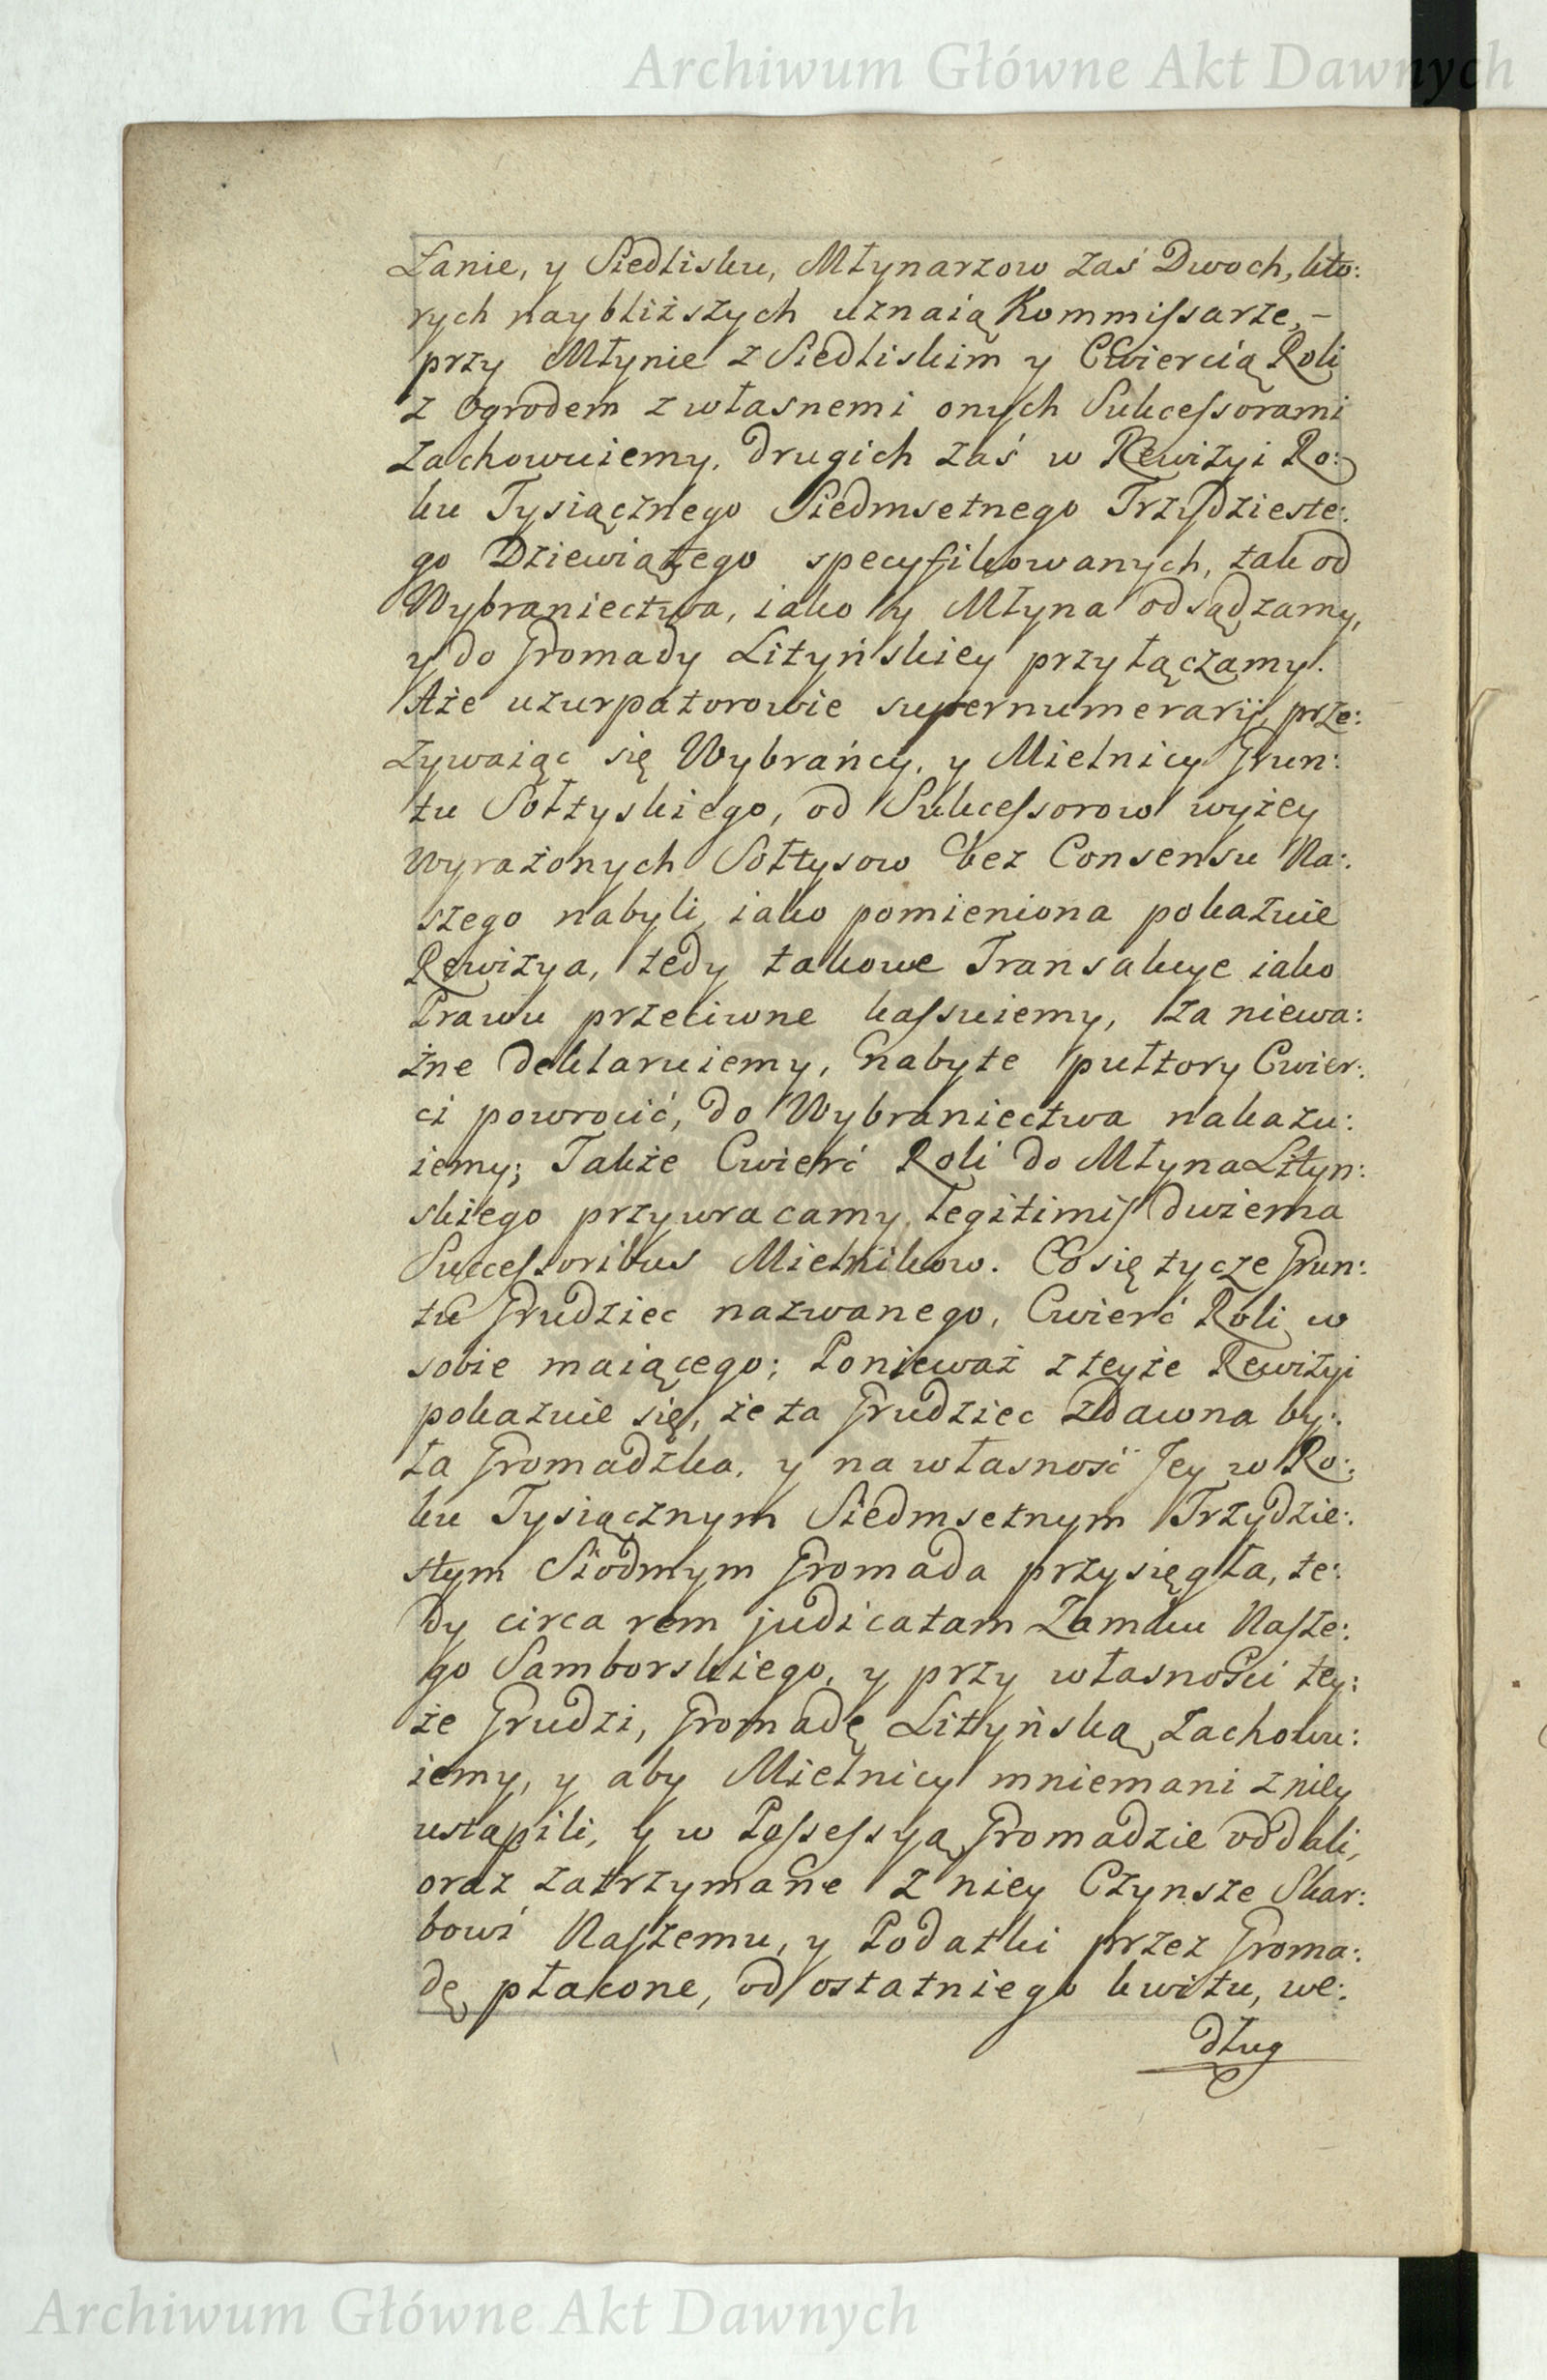 Archiwum Główne Akt Dawnych
Łanie, y Siedlisku, Młynarzow zaś Dwoch, kto:
rych naybliższych uznaią Kommiſsarze, –
przy Młynie z Siedliskim y Cwiercią Roli
z Ogrodem z własnemi onych Sukceſsorami
zachowuiemy, drugich zaś w Rewizyi Ro:
ku Tysiącznego Siedmsetnego Trzydzieste:
go Dziewiątego specyfikowanych, tak od
Wybraniectwa, iako y Młyna odsądzamy,
y do Gromady Lityńskiey przyłączamy.
Aże uzurpatorowie supernumerarij, prze:
zywaiąc się Wybrańcy, y Mielnicy Grun:
tu Sołtyskiego, od Sukceſsorow wyżey
wyrażonych Sołtysow bez Consensu Na:
szego nabyli, iako pomieniona pokazuie
Rewizya, tedy takowe Transakcye iako
Prawu przeciwne kaſsuiemy, za niewa:
żne deklaruiemy, nabyte pułtory Cwier:
ci powrocić, do Wybraniectwa nakazu:
iemy; Także Cwierć Roli do Młyna Lityn:
skiego przywracamy, legitimiſ dwiema
Succeſsoribus Mielnikow. Co się tycze Grun:
tu Grudziec nazwanego, Cwierć Roli w
sobie maiącego; Ponieważ z teyże Rewizyi
pokazuie się, że ta Grudziec zdawna by:
ła Gromadzka, y na własność Jey w Ro:
ku Tysiącznym Siedmsetnym Trzydzie:
stym Siodmym Gromada przysięgła, te:
dy circa rem judicatam Zamku Naſze:
go Samborskiego, y przy własności tey:
że Grudzi, Gromadę Lityńską zachowu:
iemy, y aby Mielnicy mniemani z niey
ustąpili, y w Poſseſsyą Gromadzie oddali,
oraz zatrzymane z niey Czynsze Skar:
bowi Naſzemu, y Podatki przez Groma:
dę płacone, od ostatniego kwitu, we:
dług
Archiwum Główne Akt Dawnych